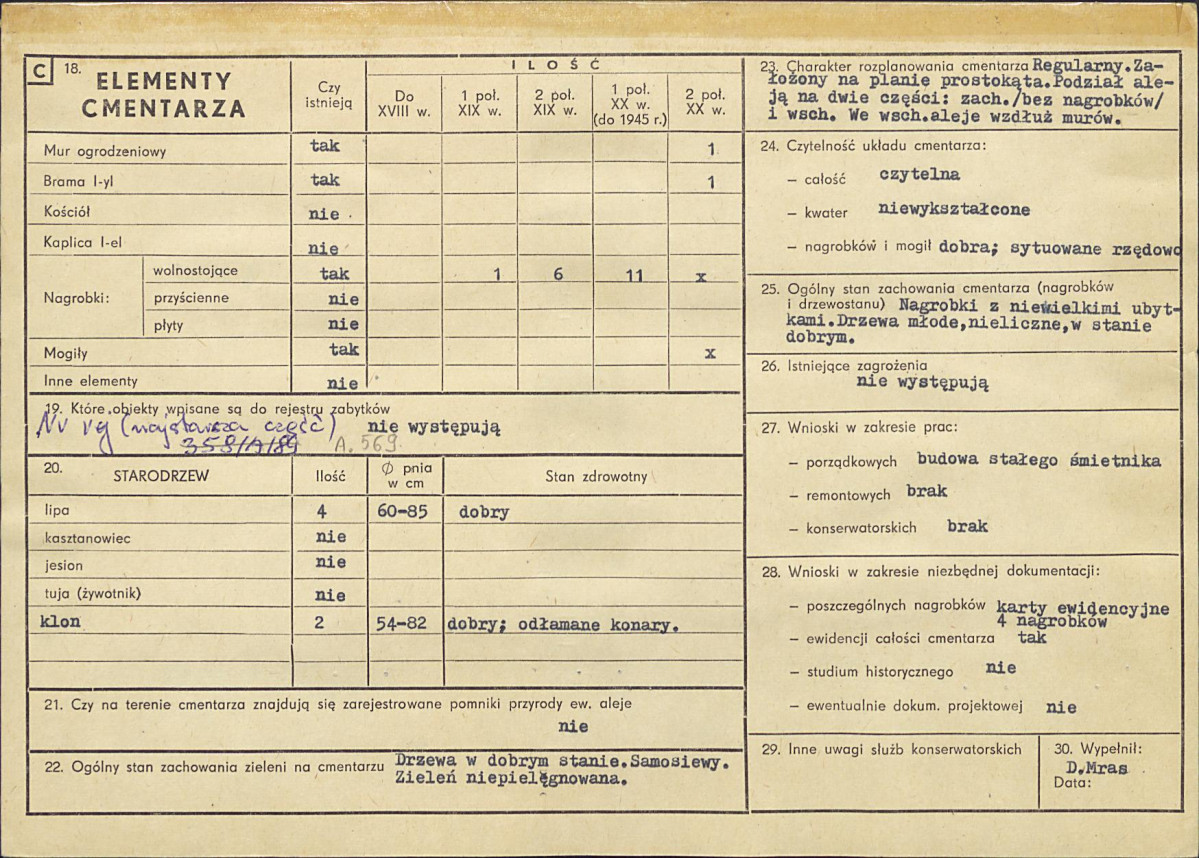 C 18. ELEMENTY
CMENTARZA
Czy
istnieją
ILOŚĆ
Do
XVIII w.
1 poł.
XIX w.
2 poł.
XIX w.
1 poł.
XX w.
(do 1945 r.)
2 poł.
XX w.
Mur ogrodzeniowy tak 1
Brama I-yl tak 1
Kościół nie
Kaplica I-el nie
Nagrobki:
wolnostojące tak 1 6 11 x
przyścienne nie
płyty nie
Mogiły tak x
Inne elementy nie
19. Które obiekty wpisane są do rejestru zabytków
Nr rej (najstarsza część) nie występują
358/A/89 A. 569
20. STARODRZEW Ilość Ø pnia
w cm Stan zdrowotny
lipa 4 60-85 dobry
kasztanowiec nie
jesion nie
tuja (żywotnik) nie
klon 2 54-82 dobry; odłamane konary.
21. Czy na terenie cmentarza znajdują się zarejestrowane pomniki przyrody ew. aleje
nie
22. Ogólny stan zachowania zieleni na cmentarzu Drzewa w dobrym stanie.Samosiewy.
Zieleń niepielęgnowana.
23. Charakter rozplanowania cmentarza Regularny.Za-
łożony na planie prostokąta.Podział ale-
ją na dwie części: zach./bez nagrobków/
i wsch. We wsch.aleje wzdłuż murów.
24. Czytelność układu cmentarza:
– całość czytelna
– kwater niewykształcone
– nagrobków i mogił dobra; sytuowane rzędowo
25. Ogólny stan zachowania cmentarza (nagrobków
i drzewostanu) Nagrobki z niewielkimi ubyt-
kami.Drzewa młode,nieliczne,w stanie
dobrym.
26. Istniejące zagrożenia
nie występują
27. Wnioski w zakresie prac:
– porządkowych budowa stałego śmietnika
– remontowych brak
– konserwatorskich brak
28. Wnioski w zakresie niezbędnej dokumentacji:
– poszczególnych nagrobków karty ewidencyjne
4 nagrobków
– ewidencji całości cmentarza tak
– studium historycznego nie
– ewentualnie dokum. projektowej nie
29. Inne uwagi służb konserwatorskich
30. Wypełnił:
D.Mras
Data: